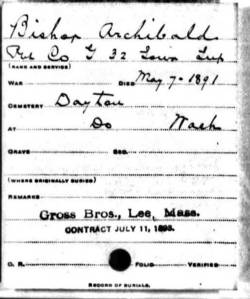 Bishop Archibald
Pvt Co G 32 Iowa Inf
(NAME AND SERVICE)
WAR DIED May 7-1891
CEMETERY Dayton
AT Do Wash
GRAVE SEC.
(WHERE ORIGINALLY BURIED)
REMARKS
Gross Bros., Lee, Mass.
CONTRACT JULY 11, 1893.
O. R. FOLIO VERIFIED
RECORD OF BURIALS.